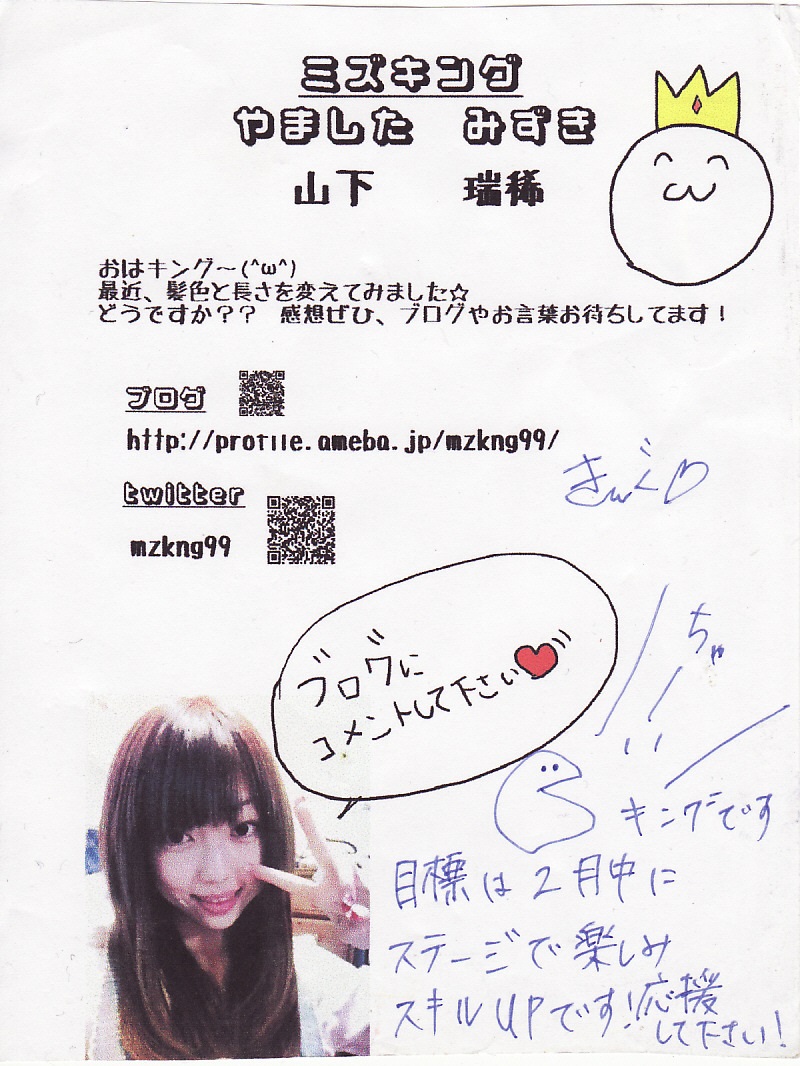 ミズキング
やました　みずき
山下　瑞稀
おはキング～(^ω^)
最近、髪色と長さを変えてみました☆
どうですか？？　感想ぜひ、ブログやお言葉お待ちしてます！
ブログ
http://profile.ameba.jp/mzkng99/
きんぐ♡
twitter
mzkng99
ブログに
コメントして下さい♥
ちゃ
いい
キングです
目標は2月中に
ステージで楽しみ
スキルUPです！応援
して下さい！